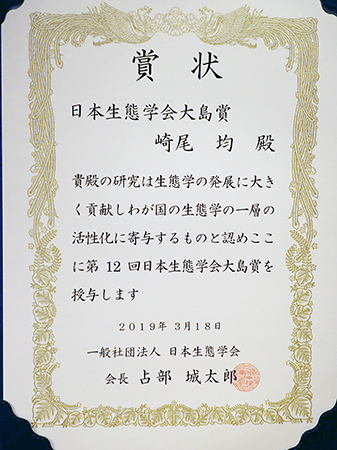 賞状
日本生態学会大島賞
崎尾 均 殿
貴殿の研究は生態学の発展に大き
く貢献しわが国の生態学の一層の
活性化に寄与するものと認めここ
に第 12 回日本生態学会大島賞を
授与します
2019年 3月18日
一般社団法人 日本生態学会
会長 占部 城太郎